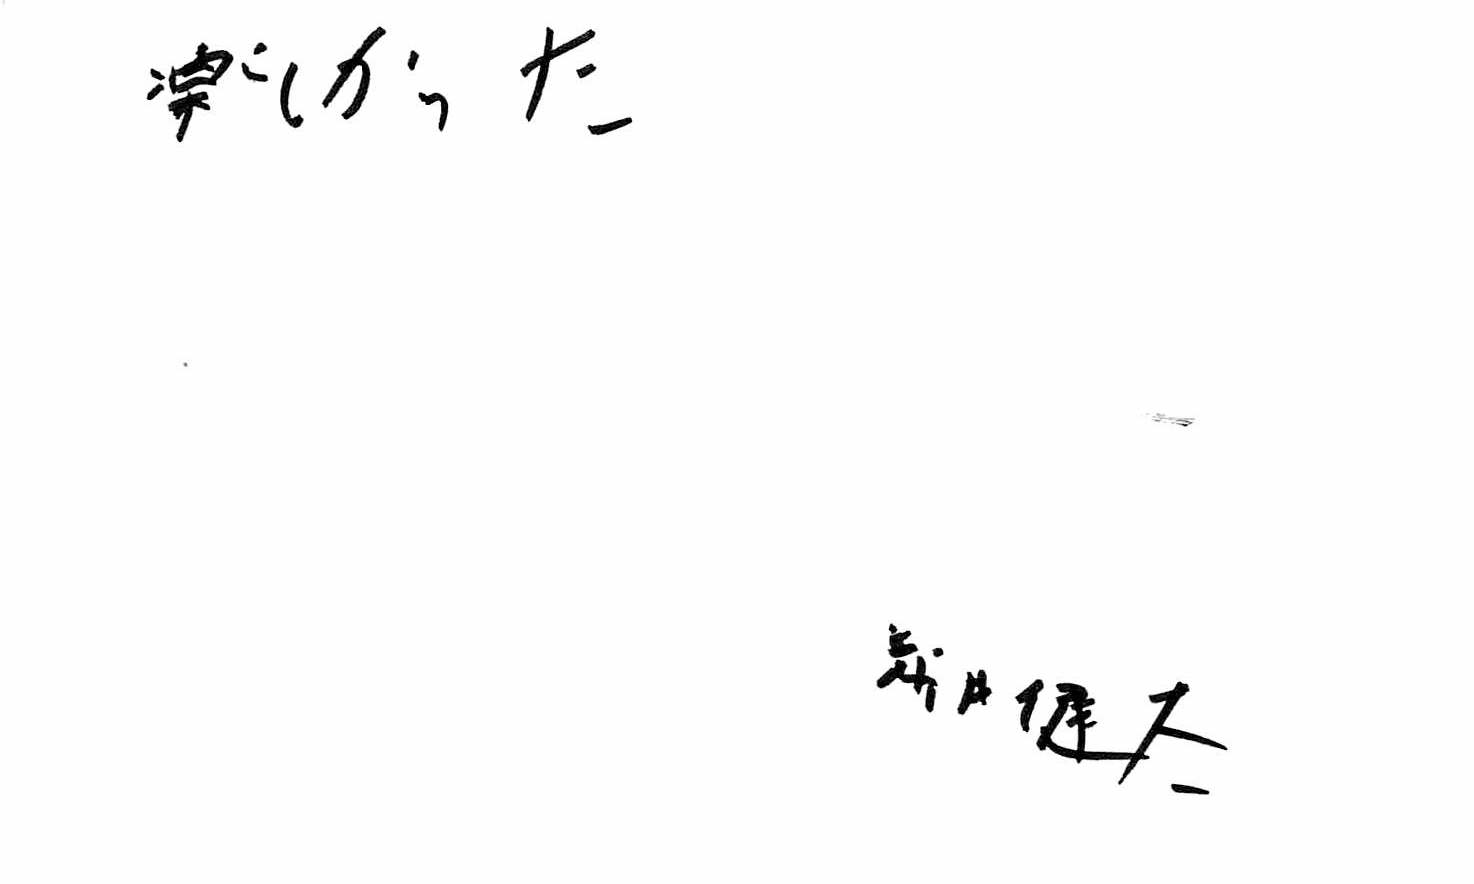 楽しかった
新井健太